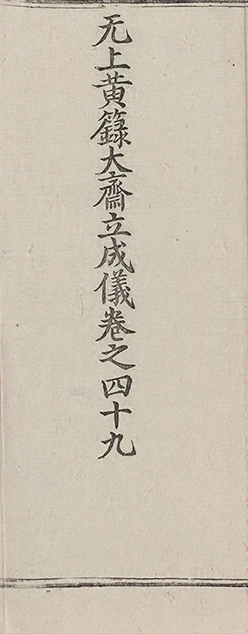 无上黃籙大齋立成儀卷之四十九